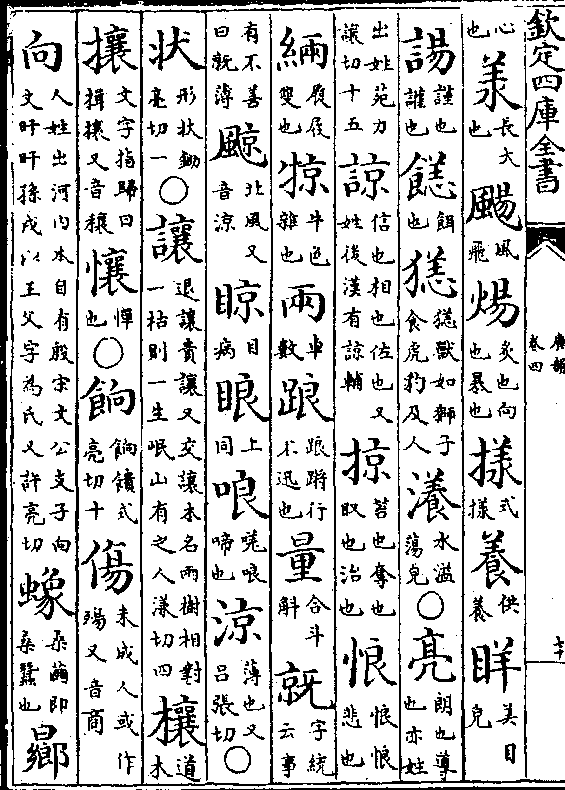 欽定四庫全書
廣韻 卷四
心也 羕 長大也 颺 風飛 煬 炙也向也暴也 様 式様 養 供養 眻 美目皃
諹 讙也讙也 餻 餌也 㺊 㺊獸如獅子食虎豹及人 瀁 水溢蕩皃 ○ 亮 朗也導也亦姓
出姓苑力讓切十五 諒 信也相也佐也又姓後漢有諒輔 掠 笞也奪也取也治也 悢 悢悢悲也
緉 履屐雙也 㹁 牛色雜也 兩 車數 踉 踉蹡行不迅也 量 合斗斛 就 字統云事
有不善曰就薄 飈 北風又音涼 晾 目病 眼 上同 哴 唴哴啼也 涼 薄也又呂張切 ○
状 形状鋤亮切一 ○ 讓 退讓責讓又交讓木名兩樹相對一枯則一生岷山有之人漾切四 欀 道木
攘 文字指歸曰揖攘又音穰 懹 憚也 ○ 餉 餉饋式亮切十 傷 未成人或作殤又音商
向 人姓出河内本自有殷宋文公支子向文盱盱孫戌以王父字為氏又許亮切 蠁 桑繭即桑蠶也 曏